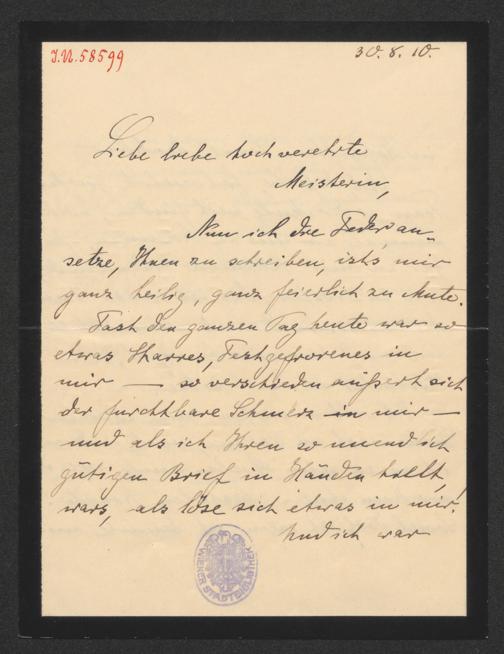 J.N. 58599
30.8.10.
Liebe liebe hochverehrte
Meisterin,
Nun ich die Feder an-
setze, Ihnen zu schreiben, ists mir
ganz heilig, ganz feierlich zu Mute.
Fast den ganzen Tag heute war so
etwas Starres, Festgefrorenes in
mir — so verschieden äußert sich
der furchtbare Schmerz in mir —
und als ich Ihren so unendlich
gütigen Brief in Händen hielt,
wars, als löse sich etwas in mir.
Und ich war
WIENER STADTBIBLIOTHEK